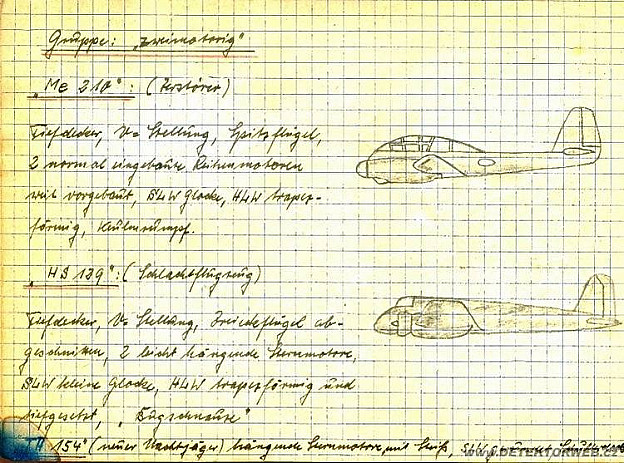 Gruppe: „zweimotorig"
„Me 210": (Zerstörer)
Tiefdecker, V= Stellung, Spitzflügel,
2 normal eingebaute Reihenmotoren
weit vorgebaut, SLW Glocke, HLW trapez-
förmig, Keulenrumpf.
„HS 129": (Schlachtflugzeug)
Tiefdecker, V= Stellung, Dreieckflügel ab-
geschnitten, 2 leicht hängende Sternmotore,
SLW kleine Glocke, HLW trapezförmig und
tiefgesetzt,
154" (neuer Nachtjäger) hängende Sternmotore, mit
www.DETEKTORWEB.cz